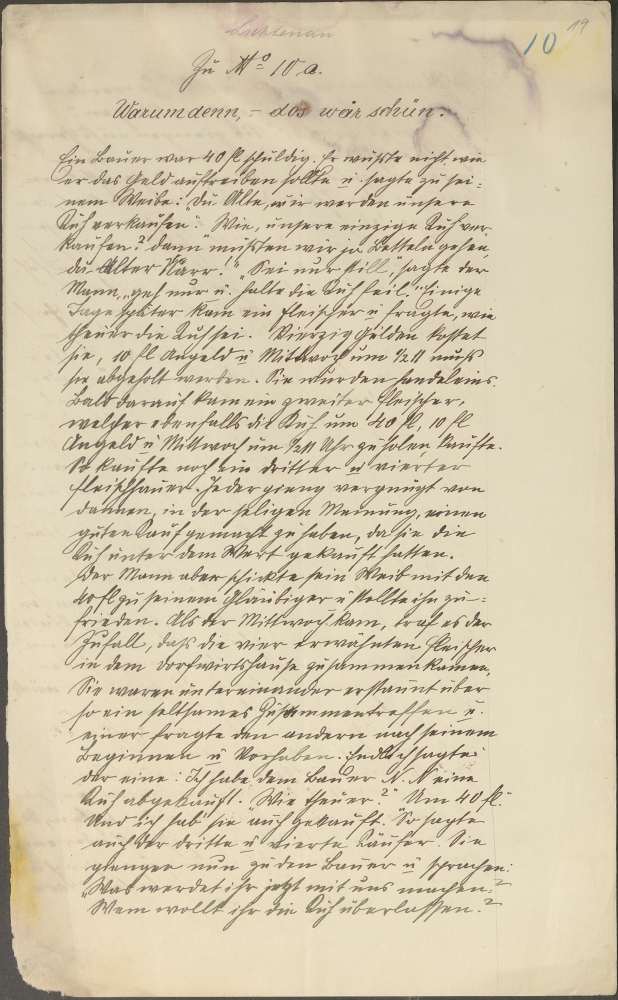 Lichtenau
10 19
Zu No 10 a.
Warum denn, – das wär schön.
Ein Bauer war 40 fl schuldig. Er wußte nicht wie
er das Geld auftreiben sollte u. sagte zu sei-
nem Weibe: "Du Alte, wir werden unsere
Kuh verkaufen". Wie, unsere einzige Kuh ver-
kaufen? dann müßten wir ja Betteln gehen,
du Alter Narr!" "Sei nur still", sagte der
Mann, "geh nur u. halte die Kuh feil." Einige
Tage später kam ein Fleischer u fragte, wie
theuer die Kuh sei. Vierzig Gulden kostet
sie, 10 fl Angeld u Mittwoch um ½11 muß
sie abgeholt werden. Sie wurden handeleins.
Bald darauf kam ein zweiter Fleischer,
welcher ebenfalls die Kuh um 40 fl, 10 fl
Angeld u Mittwoch um ½11 Uhr zu holen, kaufte.
So kaufte noch ein dritter u vierter
Fleischhauer. Jeder gieng vergnügt von
dannen, in der seligen Meinung, einen
guten Kauf gemacht zu haben, da sie die
Kuh unter dem Wert gekauft hatten.
Der Mann aber schickte sein Weib mit den
40 fl zu seinem Gläubiger u stellte ihn zu-
frieden. Als der Mittwoch kam, traf es der
Zufall, daß die vier erwähnten Fleischer
in dem Dorfwirtshause zusammen kamen.
Sie waren untereinander erstaunt über
so ein seltsames Zusammentreffen u.
einer fragte den andern nach seinem
Beginnen u Vorhaben. Endlich sagte
der eine: Ich habe dem Bauer N. N eine
Kuh abgekauft. Wie theuer?" Um 40 fl."
Und ich hab' sie auch gekauft. "So sagte
auch der dritte u vierte Käufer. Sie
giengen nun zu den Bauer u sprachen:
"Was werdet ihr jetzt mit uns machen?
Wem wollt ihr die Kuh überlassen?"